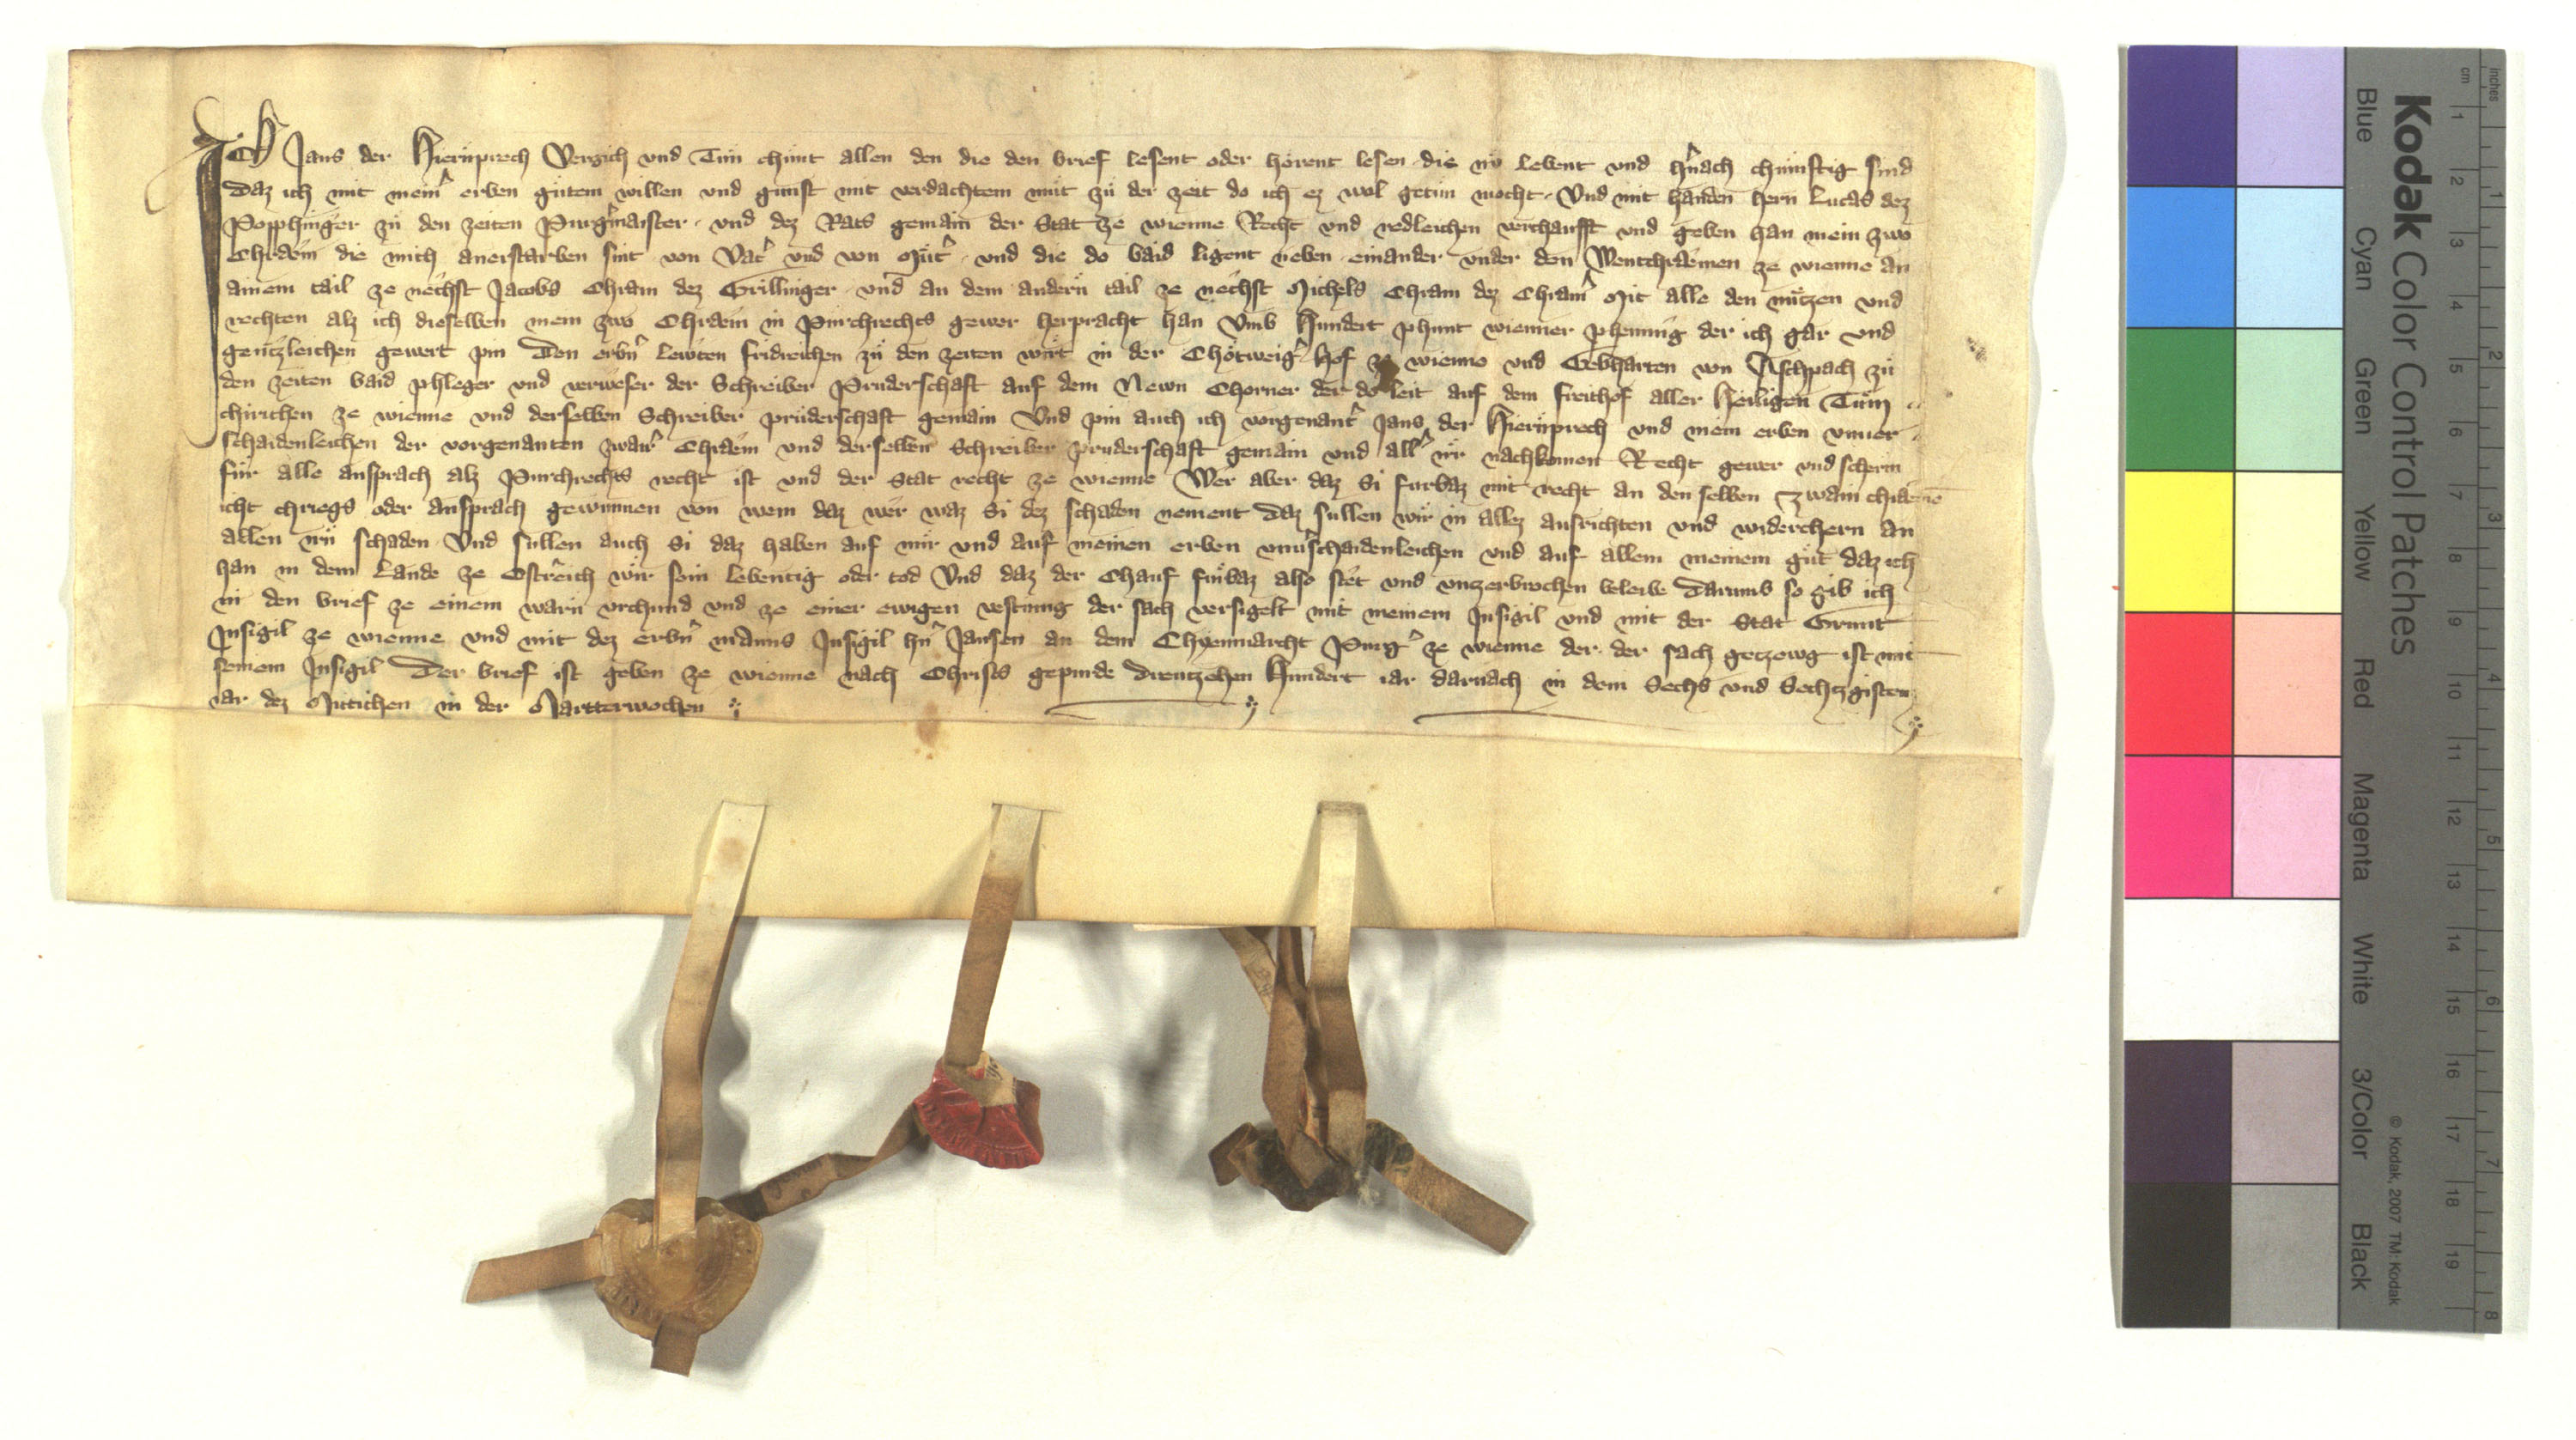 ICh Jans der Hiernprech Vergich und Tun chunt allen den die den brief lesent oder hörent lesen die nv lebent und hnach chunftig sind
daz ich mit meinr erben gutem willen und gunst mit verdachtem mut zu der zeit do ich ez wol getun mocht Vnd mit handen hern Lucas dez
Popphinger zu den zeiten Purgmaister und dez Rats gemain der Stat ze wienne Recht und redleichen verchaufft und geben han mein zwo
Chrem die mich anerstarben sint von Vatr und von Mutr und die do baid ligent neben einander under den Wentchremen ze wienne an
ainem tail ze nechst Jacobs Chram dez Grillinger und an dem andern tail ze nechst Michels Chram dez Chramr Mit alle den nutzen und
rechten alz ich dieselben mein zwo Chrem in Purchrechts gewer herpracht han Vmb Hundert phunt wienner phenning der ich gar und
gentzleichen gewert pin Den erbn lewten fridreichen zu den zeiten wirt in der Chötweigr hof ze wienne und Gebharten von Aschpach zu
den zeiten baid phleger und verweser der Schreiber Pruderschaft auf dem Newn Chorner der do leit auf dem freithof aller Heiligen Tum
chirichen ze wienne und derselben Schreiber pruderschaft gemain Vnd pin auch ich vorgenantr Jans der Hiernprech und mein erben unuer
schaidenleichen der vorgenanten zwair Chrem und derselben Schreiber pruderschaft gemain und allr irr nachkomen Recht gewer und scherm
für alle ansprach alz Purchrechts recht ist und der Stat recht ze wienne Wer aber daz Si furbaz mit recht an den selben zwain chremē
icht chriegs oder ansprach gewunnen von wem daz wer waz Si dez schaden nement daz sullen wir in allez ausrichten und widerchern an
allen irn schaden Vnd sullen auch Si daz haben auf mir und auf meinen erben unuschaidenleichen und auf allem meinem gut daz ich
han in dem Lande ze Ostreich wir sein lebentig oder tod Vnd daz der Chauf furbaz also stet und unzerbrochen beleibe darumb so gib ich
in den brief ze einem warn urchund und ze einer ewigen vestnung der sach versigelt mit meinem Insigil und mit der Stat Grunt
Insigil ze wienne und mit dez erbn manns Insigil hn Jansen an dem Chyenmarcht Purgr ze wienne der der sach getzewg ist mit
seinem Insigil Der brief ist geben ze wienne nach Christs gepurde Dreutzehen Hundert iar darnach in dem Sechs und Sechtzgisten
iar dez Mittichen in der Martterwochen
Kodak Color Control Patches
Blue Cyan Green Yellow Red Magenta White 3/Color Black
© Kodak, 2007 TM: Kodak
cm 1 2 3 4 5 6 7 8 9 10 11 12 13 14 15 16 17 18 19
inches 1 2 3 4 5 6 7 8